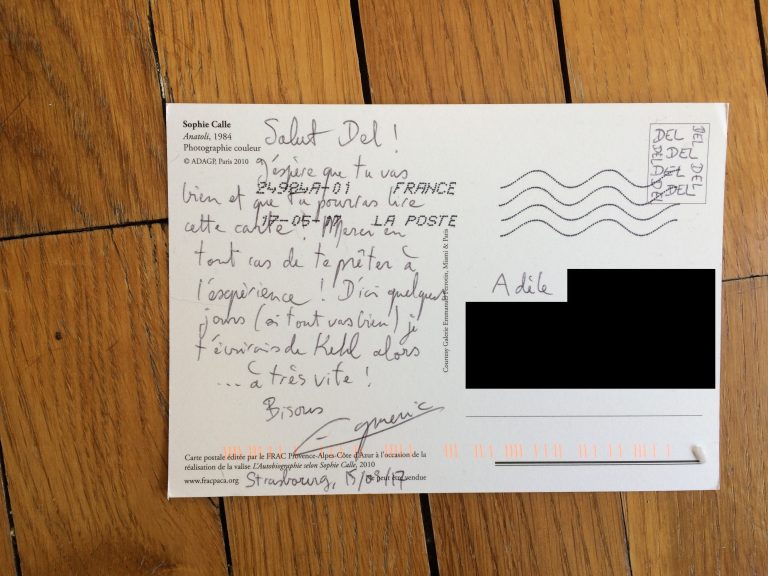 Sophie Calle
Anatoli, 1984
Photographie couleur
© ADAGP, Paris 2010
Salut Del !
J'éspère que tu vas
bien et que tu pourras lire
cette carte ! Merci en
tout cas de te prêter à
l'expérience ! D'ici quelques
jours (si tout vas bien) je
t'écrirais de Kehl alors
... à très vite !
Bisous
24984A-01 FRANCE
17-05-17 LA POSTE
DEL
DEL
DEL
DEL
DEL
DEL
DEL
Adèle
Courtesy Galerie Emmanuel Perrotin, Miami & Paris
Carte postale éditée par le FRAC Provence-Alpes-Côte d'Azur à l'occasion de la
réalisation de la valise L'Autobiographie selon Sophie Calle, 2010
www.fracpaca.org Ne peut être vendue
Strasbourg, 15/05/17